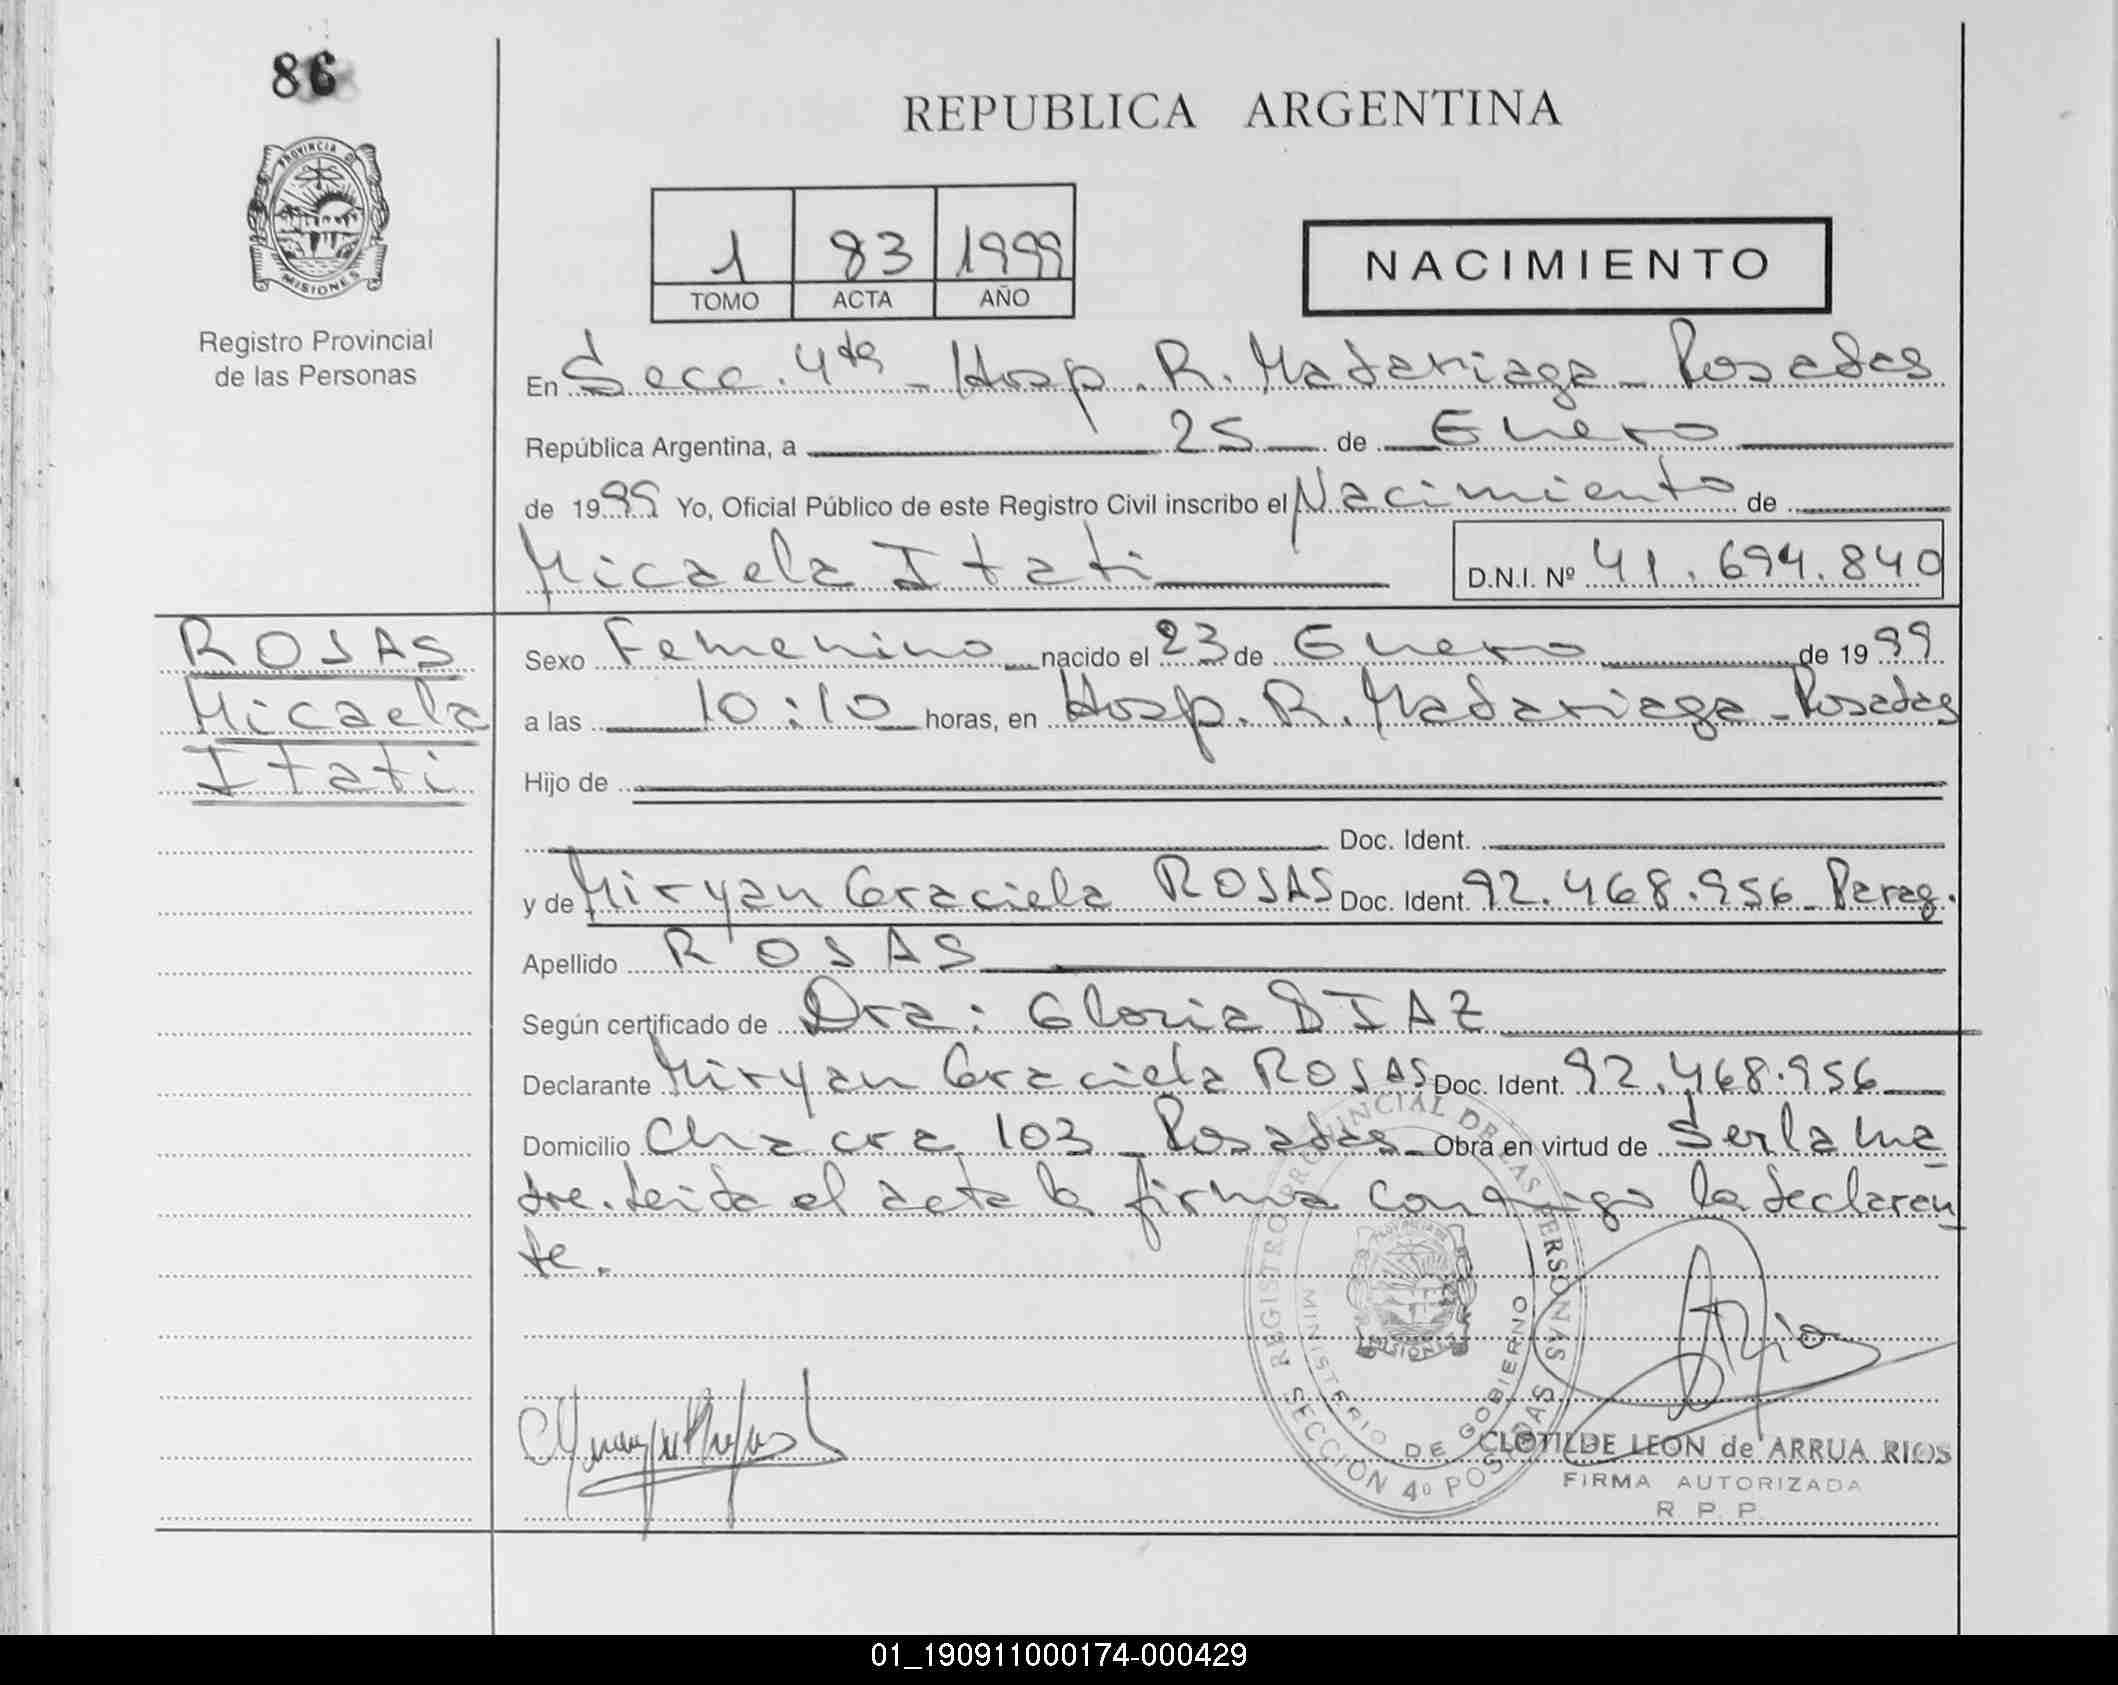 86
REPUBLICA ARGENTINA
PROVINCIA DE
MISIONES
1 83 1999
TOMO ACTA AÑO
NACIMIENTO
Registro Provincial
de las Personas
En Secc. 4ta - Hosp. R. Madariaga - Posadas
República Argentina, a 25 de Enero
de 1999 Yo, Oficial Público de este Registro Civil inscribo el Nacimiento de
Micaela Itati D.N.I. Nº 41.694.840
ROSAS
Micaela
Itati
Sexo Femenino nacido el 23 de Enero de 1999
a las 10:10 horas, en Hosp. R. Madariaga - Posadas
Hijo de
Doc. Ident.
y de Miryan Graciela ROSAS Doc. Ident. 92.468.956 - Parag.
Apellido ROSAS
Según certificado de Dra: Gloria DIAZ
Declarante Miryan Graciela ROSAS Doc. Ident. 92.468.956
Domicilio Chacra 103 - Posadas - Obra en virtud de Ser la ma
dre. Leida el acta la firma conmigo la declaran
te.
REGISTRO PROVINCIAL DE LAS PERSONAS
MINISTERIO DE GOBIERNO
MISIONES
SECCION 4º POSADAS
CLOTILDE LEON de ARRUA RIOS
FIRMA AUTORIZADA
R. P. P.
01_190911000174-000429